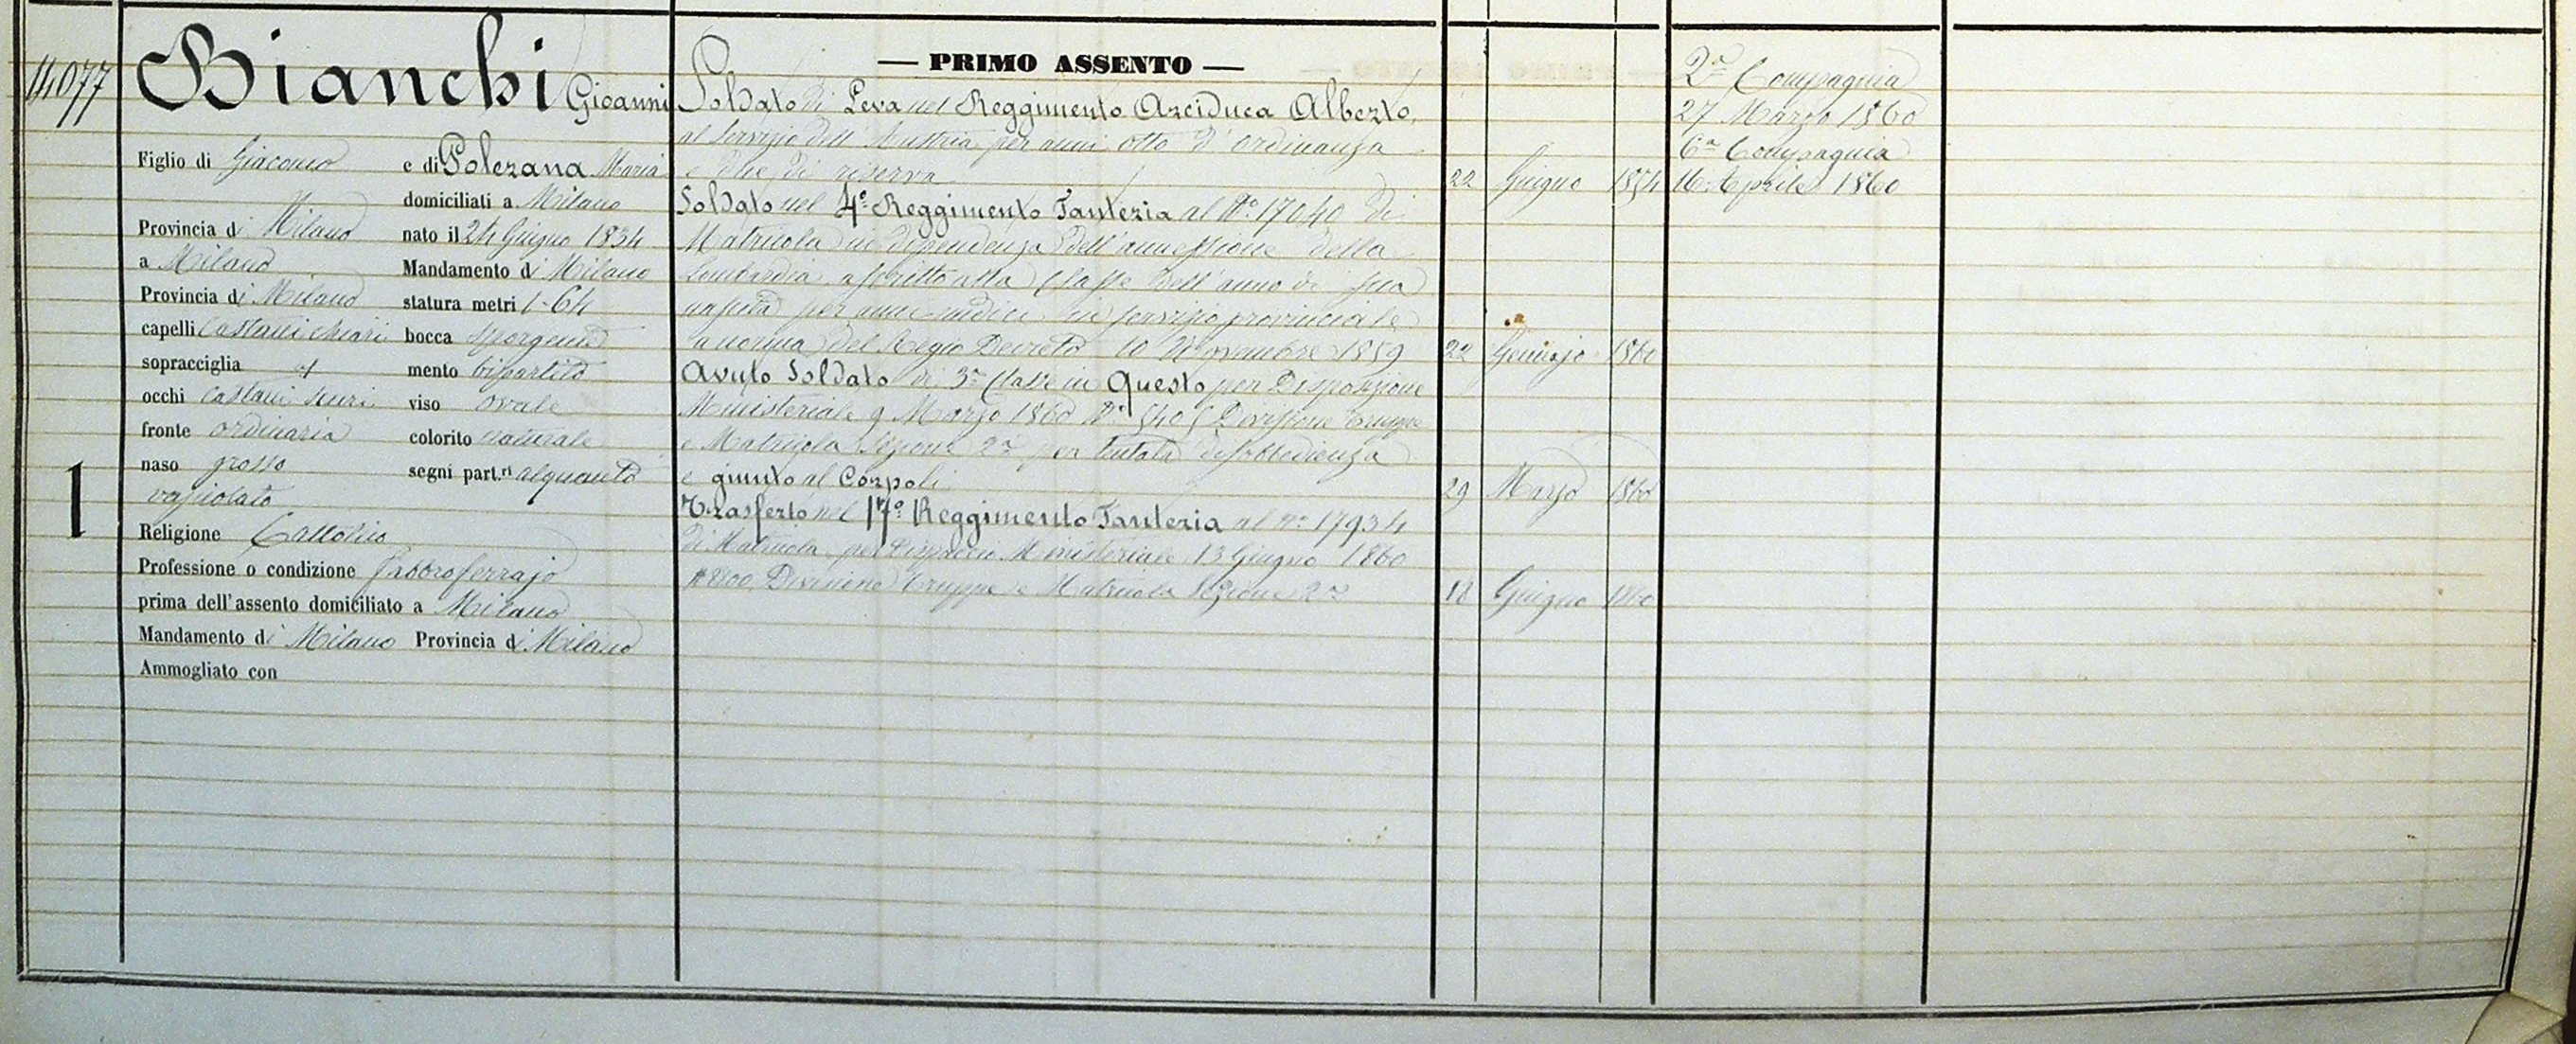 14077
Bianchi Gioanni
Figlio di Giacomo e di Polezana Maria
domiciliati a Milano
Provincia di Milano nato il 24 Giugno 1834
a Milano Mandamento di Milano
Provincia di Milano statura metri 1-64
capelli Castani chiari bocca sporgente
sopracciglia mento bipartito
occhi castani scuri viso ovale
fronte ordinaria colorito naturale
naso grosso segni part.ri alquanto
vajuolato
1
Religione Cattolica
Professione o condizione fabbroferrajo
prima dell'assento domiciliato a Milano
Mandamento di Milano Provincia di Milano
Ammogliato con
— PRIMO ASSENTO —
Soldato di Leva nel Reggimento Arciduca Alberto,
al servizio dell'Austria per anni otto d'ordinanza
e due di riserva 22 Giugno 1854
Soldato nel 4º Reggimento Fanteria al Nº 17040 di
Matricola in dipendenza dell'annessione della
Lombardia ascritto alla Classe dell'anno di sua
nascita per anni undici in servizio provinciale
a norma del Regio Decreto 10 Novembre 1859 22 Gennajo 1860
Avuto Soldato di 3ª Classe in Questo per Disposizione
Ministeriale 9 Marzo 1860 Nº 5405 Divisione Truppe
e Matricola Sezione 2ª per tentata disobbedienza
e giunto al Corpo li 29 Marzo 1860
Trasferto nel 17º Reggimento Fanteria al nº 17934
di Matricola per Dispaccio Ministeriale 13 Giugno 1860
Nº 8800 Divisione Truppe e Matricola Sezione 2ª 18 Giugno 1860
2ª Compagnia
27 Marzo 1860
6ª Compagnia
16 Aprile 1860